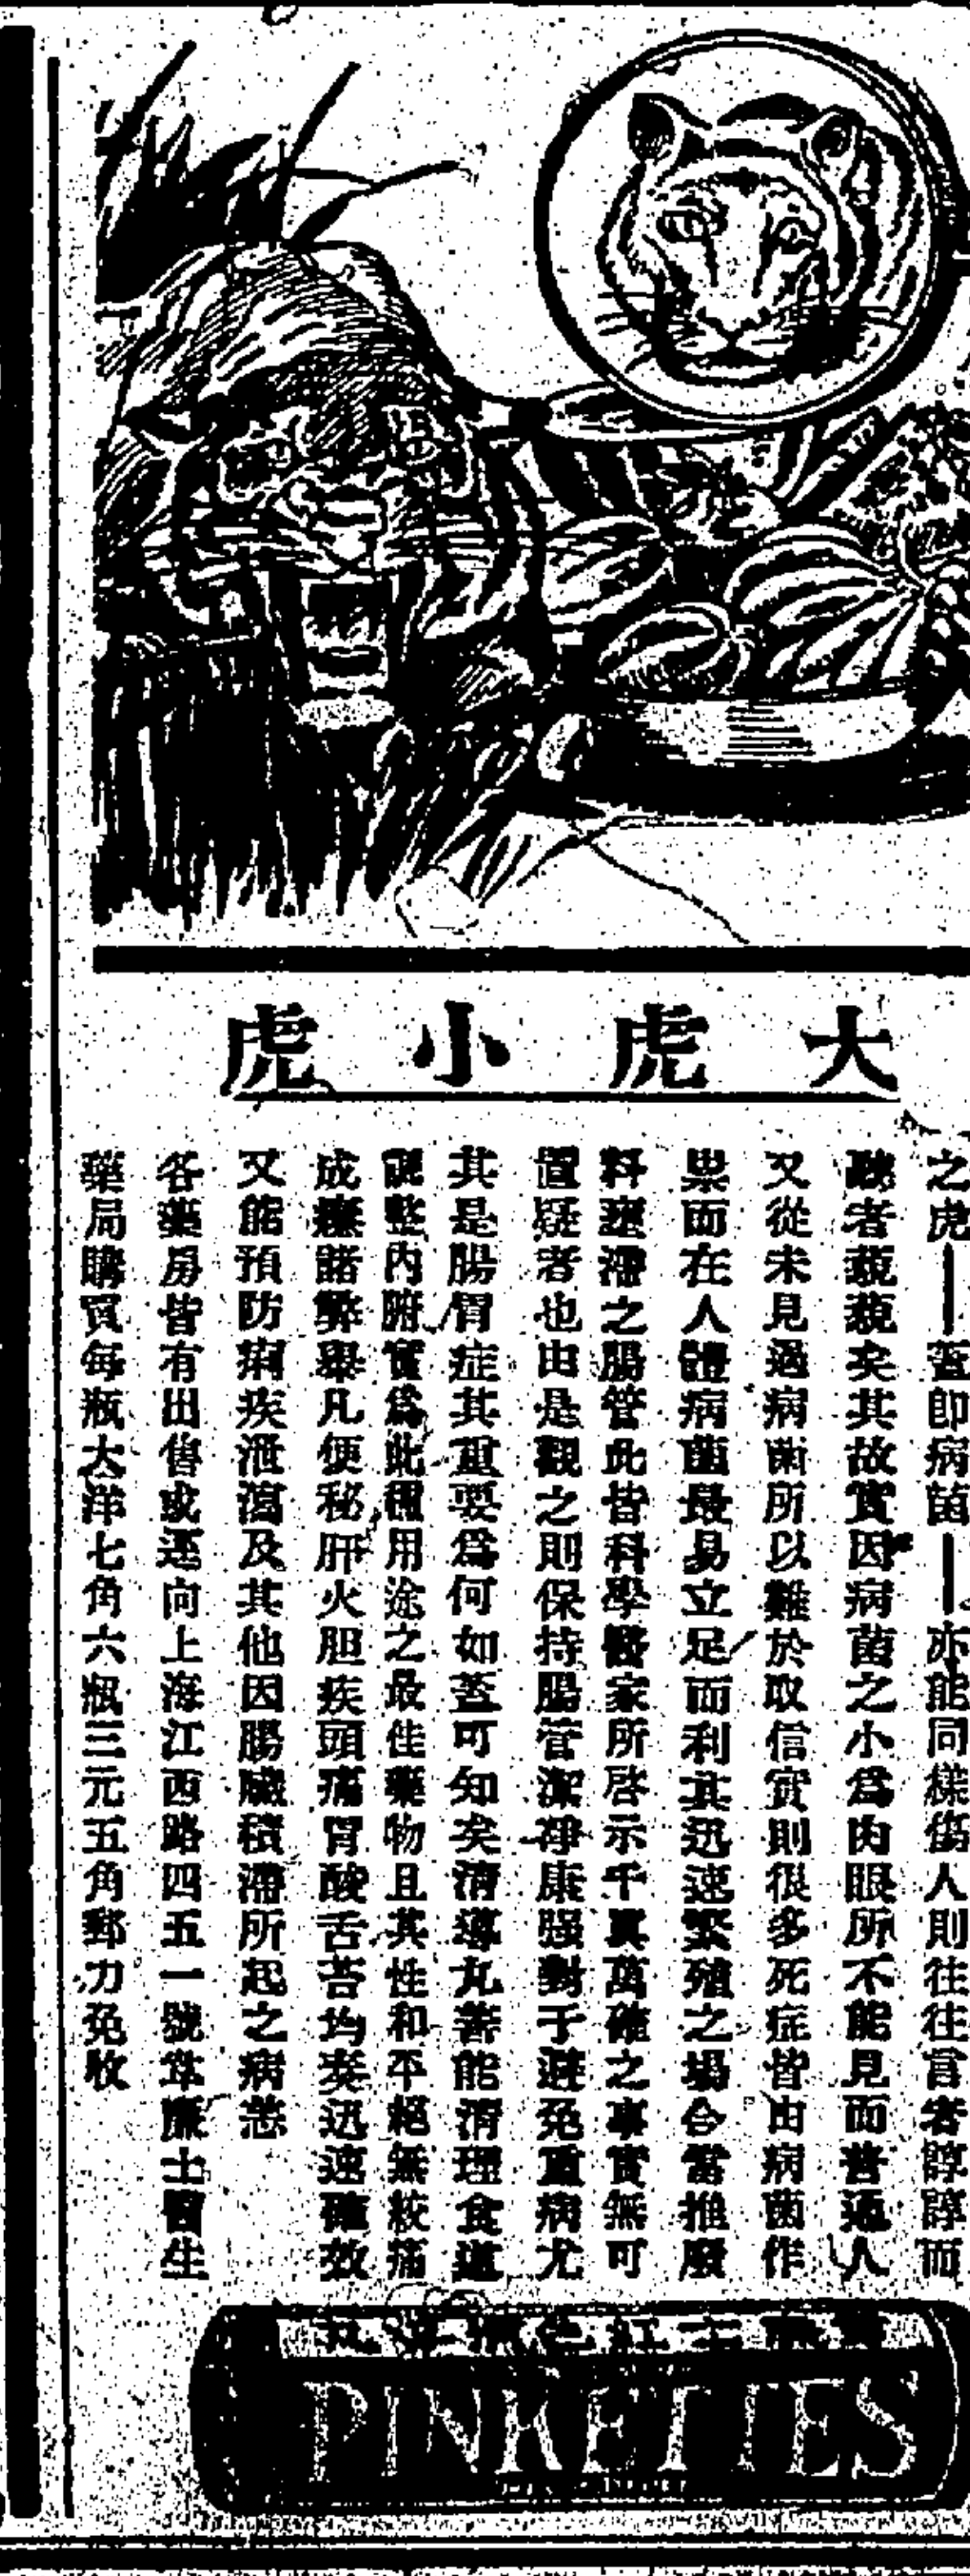 大虎小虎
之虎—蓋即病菌—亦能同樣傷人則往往言者諄諄而
聽者藐藐矣其故實因病菌之小為肉眼所不能見而普通人
又從未見過病菌所以難於取信實則很多死症皆由病菌作
祟而在人體病菌最易立足而利其迅速繁殖之場合當推廢
料壅滯之腸管此皆科學醫家所啓示千眞萬確之事實無可
置疑者也由是觀之則保持腸管潔淨康强對于避免重病尤
其是腸胃症其重要為何如蓋可知矣清導丸善能清理食道
調整內腑實為此種用途之最佳藥物且其性和平絕無絞痛
成癮諸弊舉凡便秘肝火胆疾頭痛胃酸舌苔均奏迅速確效
又能預防痢疾泄瀉及其他因腸臟積滯所起之病恙
各藥房皆有出售或逕向上海江西路四五一號韋廉士醫生
藥局購買每瓶大洋七角六瓶三元五角郵力免收
PINKETTES